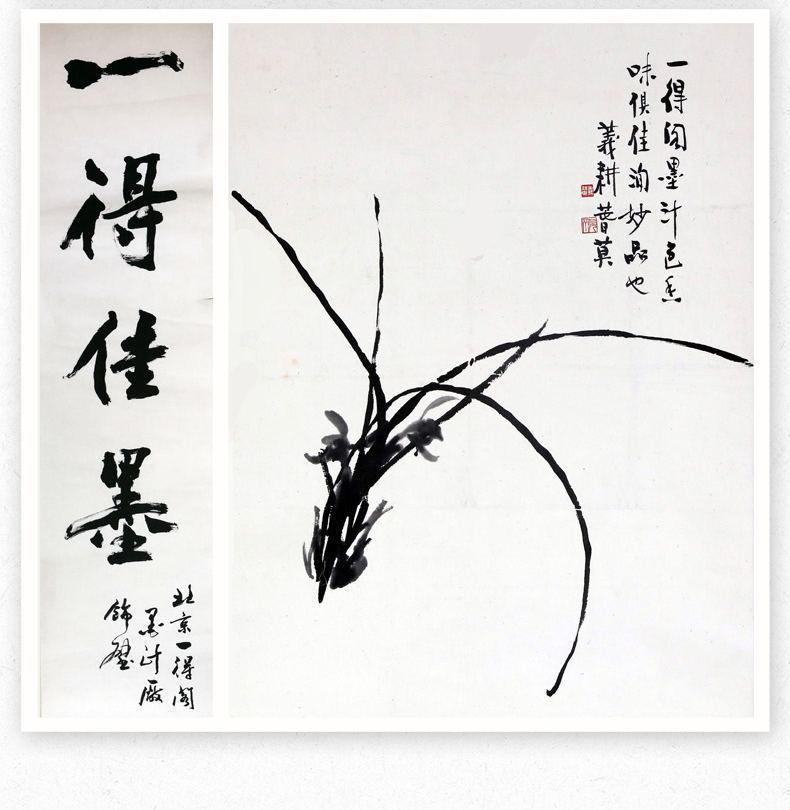 一得佳墨
北京一得阁
墨汁厰
飾壁
一得阁墨汁色香
味俱佳洵妙品也
義耕 莫